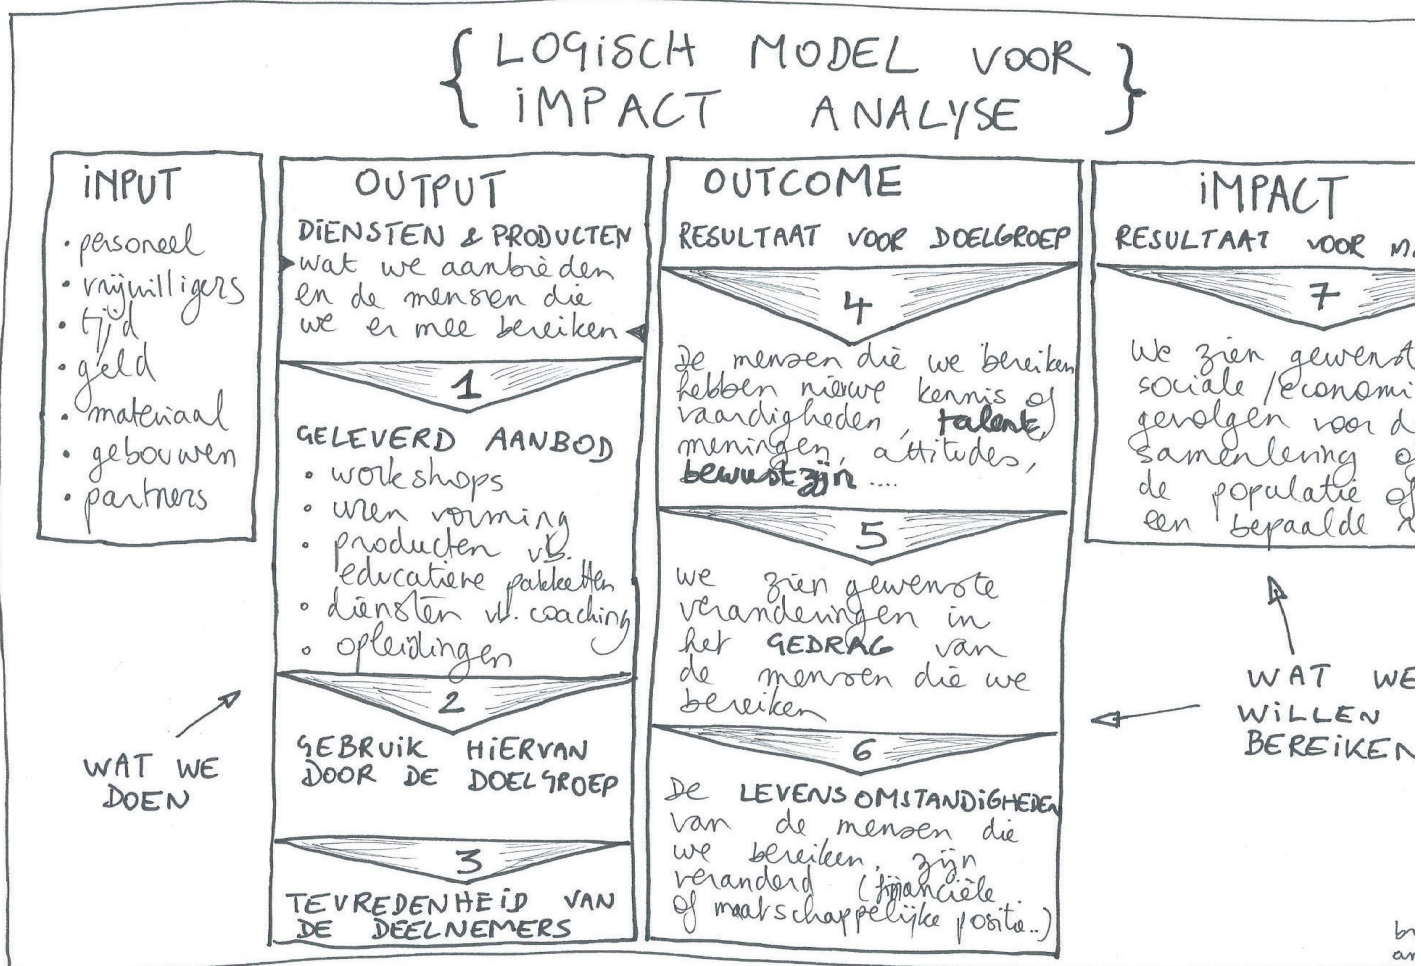 { LOGISCH MODEL VOOR
IMPACT ANALYSE }
INPUT
• personeel
• vrijwilligers
• tijd
• geld
• materiaal
• gebouwen
• partners
OUTPUT
DIENSTEN & PRODUCTEN
wat we aanbieden
en de mensen die
we er mee bereiken
1
GELEVERD AANBOD
• workshops
• uren vorming
• producten vb.
educatieve pakketten
• diensten vb. coaching
• opleidingen
2
GEBRUIK HIERVAN
DOOR DE DOELGROEP
3
TEVREDENHEID VAN
DE DEELNEMERS
OUTCOME
RESULTAAT VOOR DOELGROEP
4
De mensen die we bereiken
hebben nieuwe kennis of
vaardigheden, talent,
meningen, attitudes,
bewustzijn ....
5
we zien gewenste
veranderingen in
het GEDRAG van
de mensen die we
bereiken
6
De LEVENSOMSTANDIGHEDEN
van de mensen die
we bereiken, zijn
veranderd (financiële
of maatschappelijke positie..)
IMPACT
RESULTAAT VOOR M
7
We zien gewenst
sociale/economi
gevolgen voor d
samenleving o
de populatie of
een bepaalde
WAT WE
DOEN
WAT WE
WILLEN
BEREIKEN
br
an